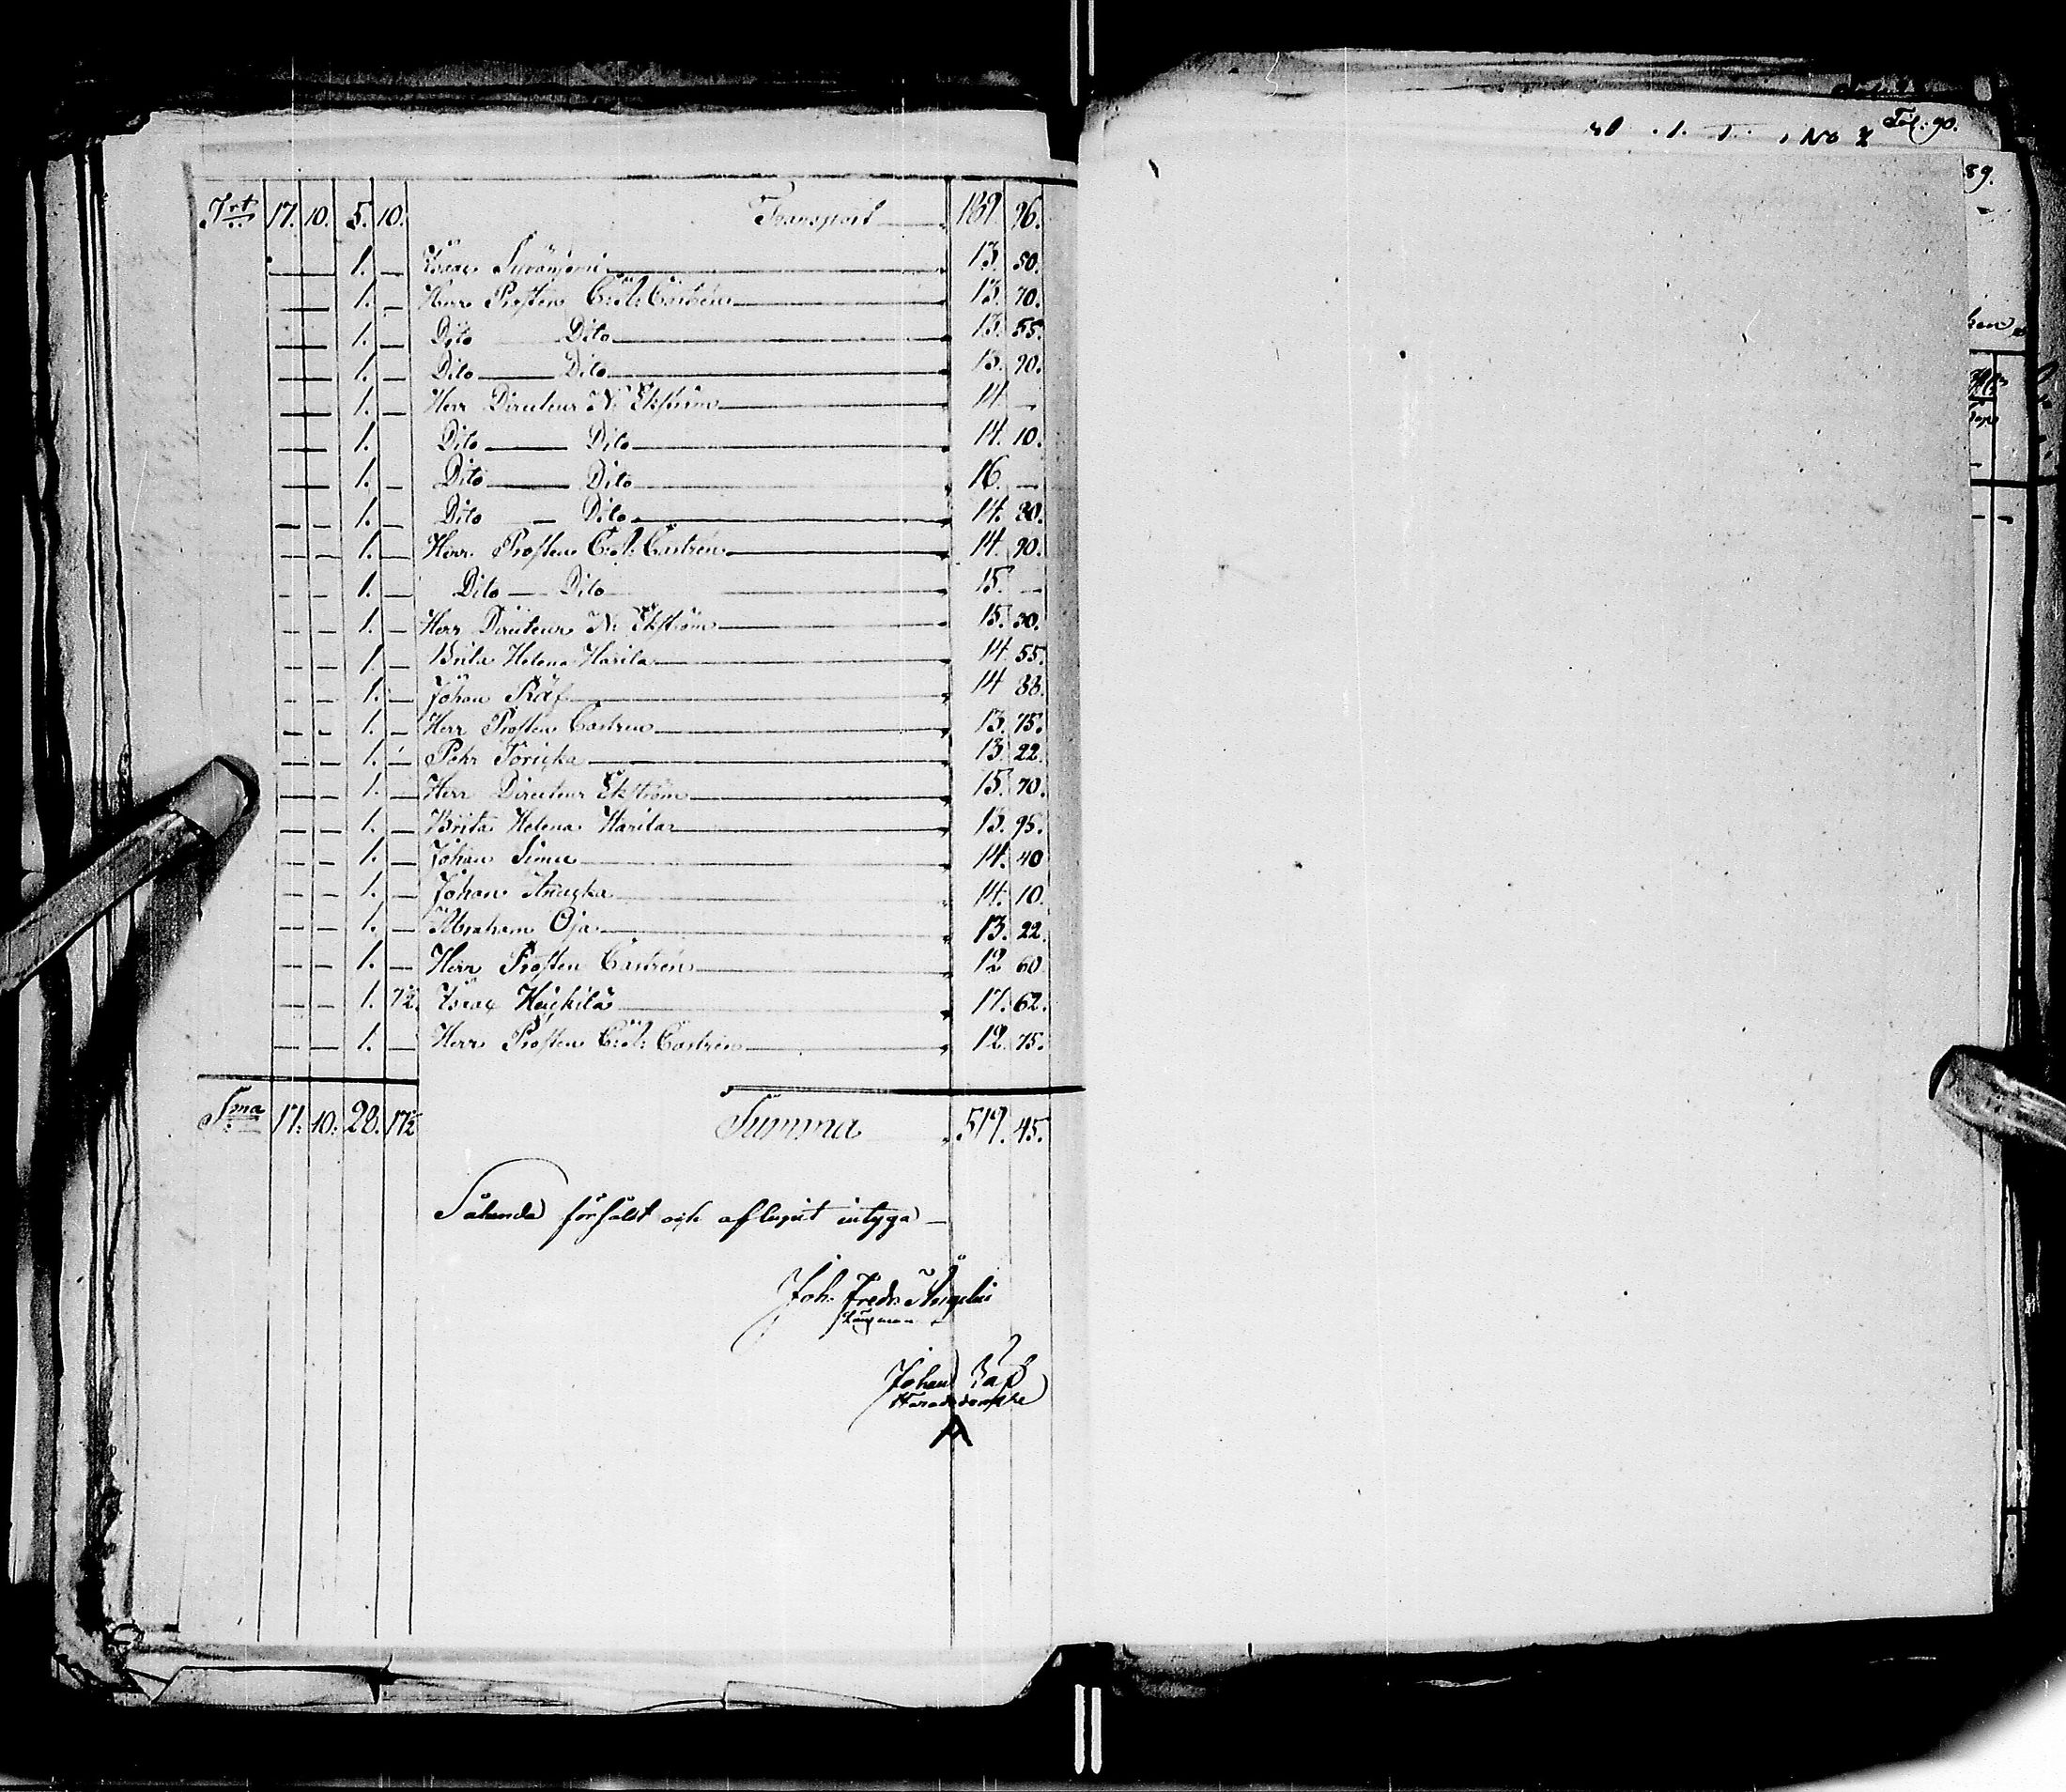 Trt 17. 10. 5. 10. Transport 189. 96.
1. — Isac 13. 50.
1. — Herr Prosten C: Castrén 13. 70.
1. — Dito Dito 13. 55.
1. — Dito Dito 13. 90.
1. — Herr Directeur N: Ekström 14. —
1. — Dito Dito 14. 10.
1. — Dito Dito 16. —
1. — Dito Dito 14. 80.
1. — Herr Prosten C: Castrén 14. 90.
1. — Dito Dito 15. —
1. — Herr Directeur N: Ekström 15. 30.
1. — Brita Helena Harila 14. 55.
1. — Johan Räf 14 88.
1. — Herr Prosten Castren 13. 75.
1. — Pehr 13. 22.
1. — Herr Directeur Ekström 15. 70.
1. — Brita Helena Harila 13. 95.
1. — Johan Simu 14. 40
1. — Johan 14. 10.
1. — Abraham Oja 13. 22.
1. — Herr Prosten Castrén 12 60
1. 7½. Isac Heickilä 17. 62.
1. — Herr Prosten C: Castrén 12. 75.
Sma 17. 10. 28. 17½ Summa 519. 45.
Sålunda förfaldt och aflupit intyga —
Joh. Fredr.
Länsman
Johan Räf
Häradsdomare
Fol: 90.
No
89.